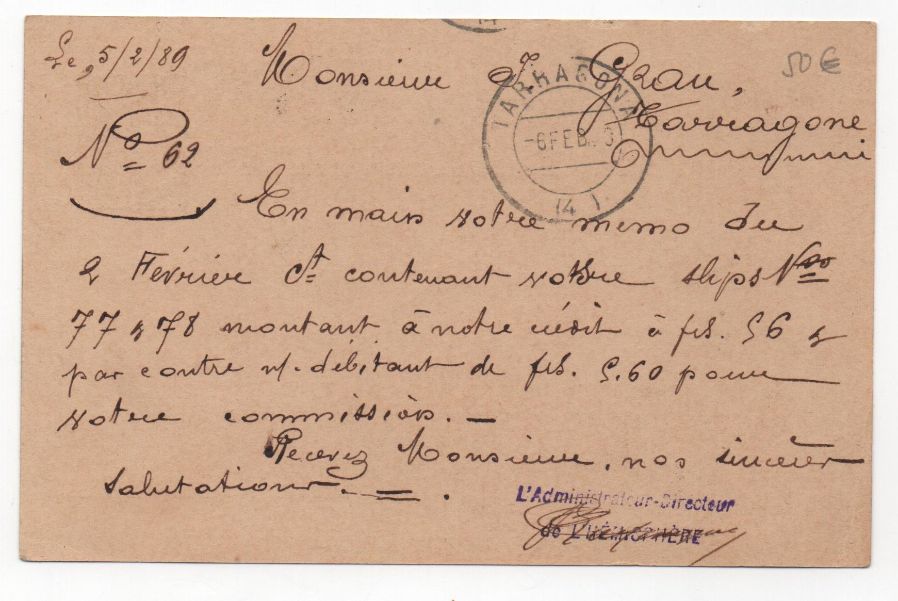 Le, 5/2/89
50€
Monsieur J. Grau,
Tarragone
TARRAGONA
-6 FEB.
(4)
No 62
En main votre memo du
2 Février ct contenant votre slips Nos
77 & 78 montant à notre crédit à frs. 56 &
par contre n/. débitant de frs. 5.60 pour
votre commission. —
Recevez Monsieur, nos sincères
salutations. — .
L'Administrateur-Directeur
de L'HÉMISPHÈRE